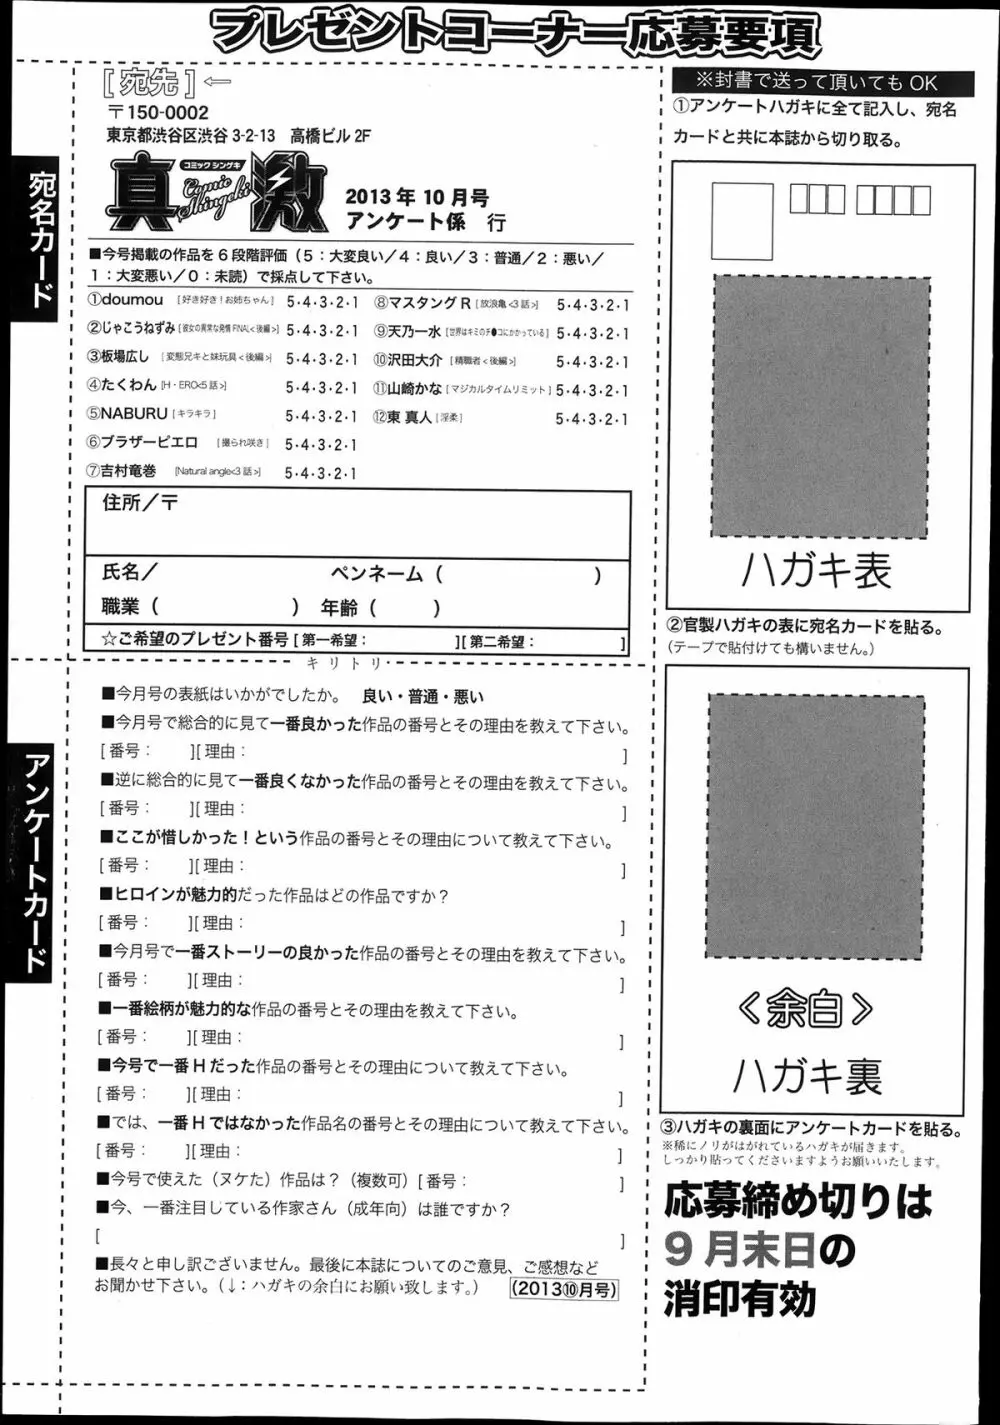 プレゼントコーナー応募要項
[宛先]←
〒150-0002
東京都渋谷区渋谷 3-2-13 高橋ビル 2F
コミック シンゲキ
真激
Comic Shingeki
2013 年 10 月号
アンケート係 行
宛名カード
■今号掲載の作品を 6 段階評価（5：大変良い／4：良い／3：普通／2：悪い／
1：大変悪い／0：未読）で採点して下さい。
①doumou [好き好き！お姉ちゃん] 5・4・3・2・1
②じゃこうねずみ [彼女の異常な発情 FINAL<後編>] 5・4・3・2・1
③板場広し [変態兄キと妹玩具<後編>] 5・4・3・2・1
④たくわん [H・ERO<5 話>] 5・4・3・2・1
⑤NABURU [キラキラ] 5・4・3・2・1
⑥ブラザーピエロ [撮られ咲き] 5・4・3・2・1
⑦吉村竜巻 [Natural angle<3 話>] 5・4・3・2・1
⑧マスタング R [放浪亀<3 話>] 5・4・3・2・1
⑨天乃一水 [世界はキミのチ●コにかかっている] 5・4・3・2・1
⑩沢田大介 [精職者<後編>] 5・4・3・2・1
⑪山崎かな [マジカルタイムリミット] 5・4・3・2・1
⑫東 真人 [淫柔] 5・4・3・2・1
住所／〒
氏名／ ペンネーム（ ）
職業（ ） 年齢（ ）
☆ご希望のプレゼント番号 [ 第一希望： ][ 第二希望： ]
キリトリ
アンケートカード
■今月号の表紙はいかがでしたか。 良い・普通・悪い
■今月号で総合的に見て一番良かった作品の番号とその理由を教えて下さい。
[ 番号： ][ 理由： ]
■逆に総合的に見て一番良くなかった作品の番号とその理由を教えて下さい。
[ 番号： ][ 理由： ]
■ここが惜しかった！という作品の番号とその理由について教えて下さい。
[ 番号： ][ 理由： ]
■ヒロインが魅力的だった作品はどの作品ですか？
[ 番号： ][ 理由： ]
■今月号で一番ストーリーの良かった作品の番号とその理由を教えて下さい。
[ 番号： ][ 理由： ]
■一番絵柄が魅力的な作品の番号とその理由を教えて下さい。
[ 番号： ][ 理由： ]
■今号で一番 H だった作品の番号とその理由について教えて下さい。
[ 番号： ][ 理由： ]
■では、一番 H ではなかった作品名の番号とその理由について教えて下さい。
[ 番号： ][ 理由： ]
■今号で使えた（ヌケた）作品は？（複数可）[ 番号： ]
■今、一番注目している作家さん（成年向）は誰ですか？
[ ]
■長々と申し訳ございません。最後に本誌についてのご意見、ご感想など
お聞かせ下さい。（↓：ハガキの余白にお願い致します。）
(2013⑩月号)
※封書で送って頂いても OK
①アンケートハガキに全て記入し、宛名
カードと共に本誌から切り取る。
ハガキ表
②官製ハガキの表に宛名カードを貼る。
（テープで貼付けても構いません。）
＜余白＞
ハガキ裏
③ハガキの裏面にアンケートカードを貼る。
※稀にノリがはがれているハガキが届きます。
しっかり貼ってくださいますようお願いいたします。
応募締め切りは
9 月末日の
消印有効